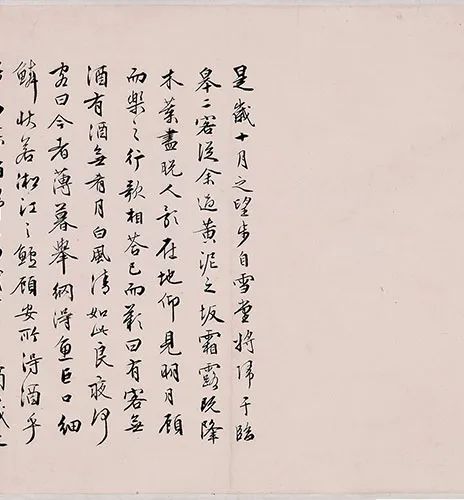 是歲十月之望步自雪堂將歸于臨
皋二客從余過黃泥之坂霜露既降
木葉盡脫人影在地仰見明月顧
而樂之行歌相答已而歎曰有客無
酒有酒無肴月白風清如此良夜何
客曰今者薄暮舉網得魚巨口細
鱗狀若淞江之鱸顧安所得酒乎